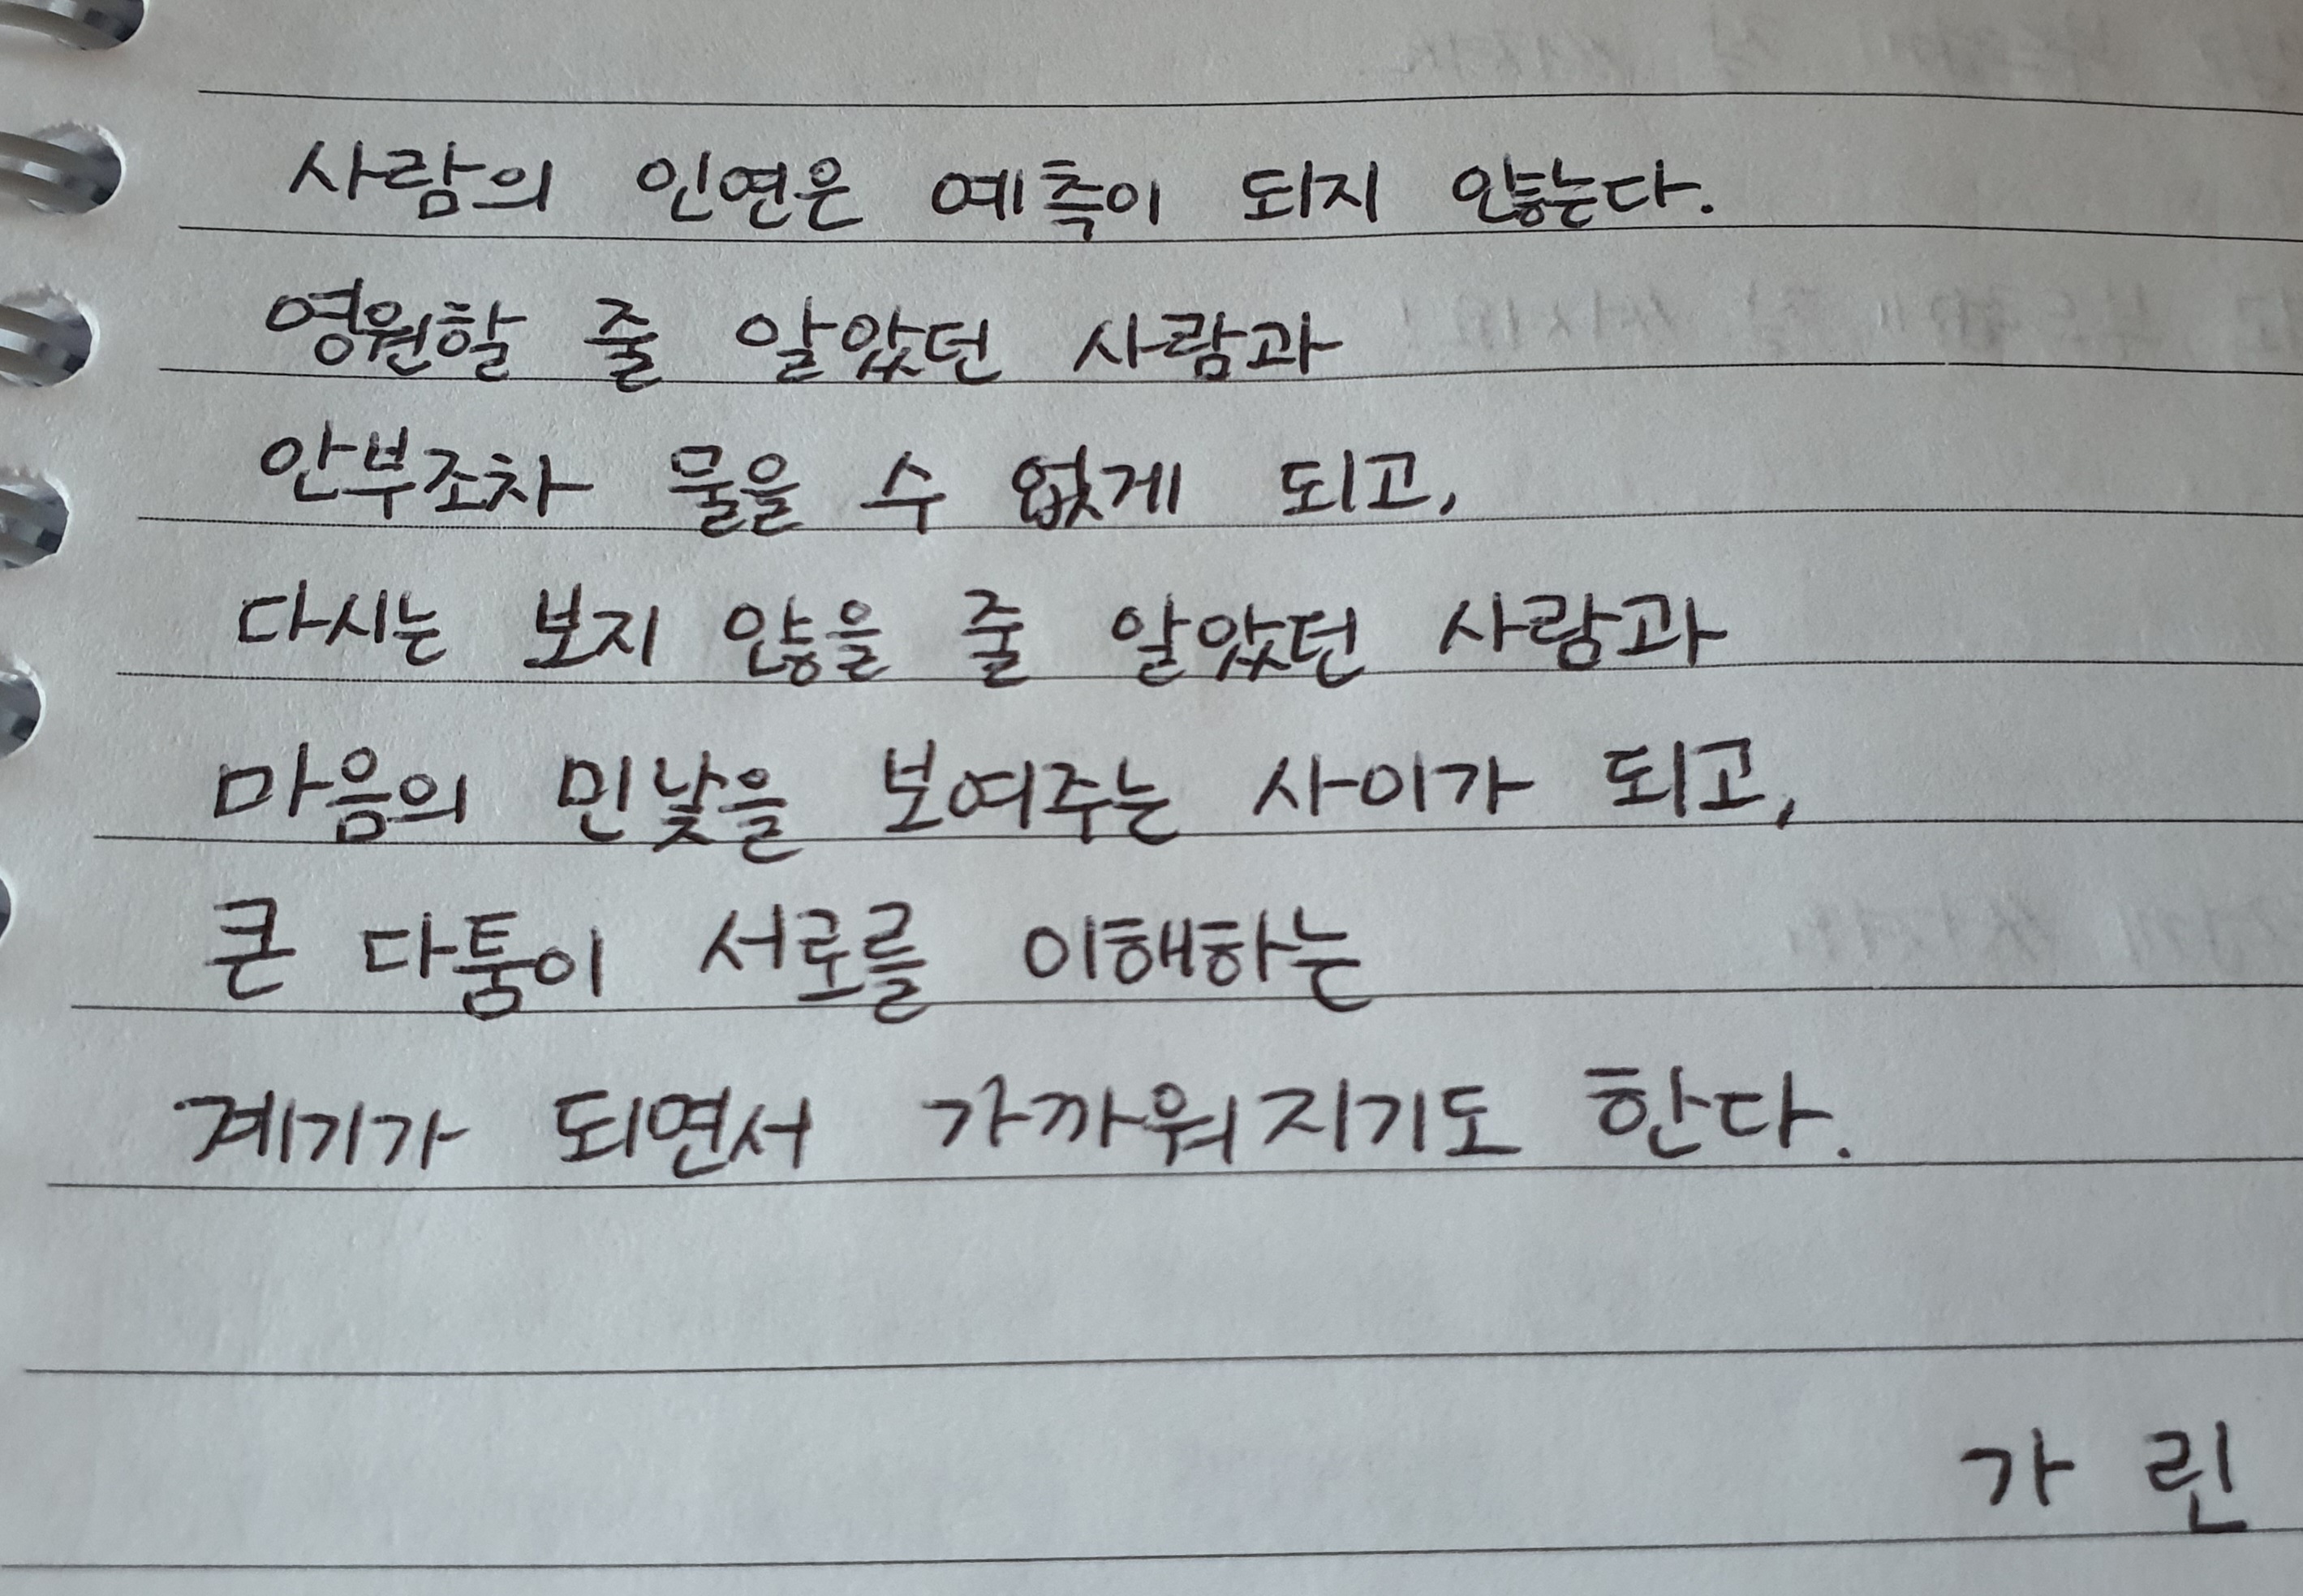 사람의 인연은 예측이 되지 않는다.
영원할 줄 알았던 사람과
안부조차 물을 수 없게 되고,
다시는 보지 않을 줄 알았던 사람과
마음의 민낯을 보여주는 사이가 되고,
큰 다툼이 서로를 이해하는
계기가 되면서 가까워지기도 한다.
가 린